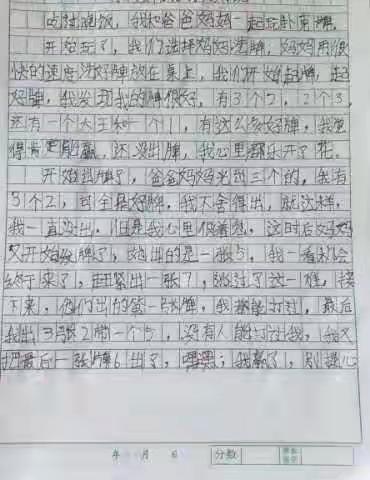 吃过晚饭，我和爸爸妈妈一起玩卧南牌。
开始玩了，我们选择妈妈洗牌，妈妈用很
快的速度洗好牌放在桌上，我们开始起牌，起
好牌，我发现我的牌很好，有3个2，2个3，
还有一个大王和一个1，有这么多好牌，我觉
得肯定能赢，还没出牌，我心里都乐开了花。
开始出牌了，爸爸妈妈光出三个的，我有
3个2，可全是好牌，我不舍得出，就这样，
我一直没出，但是我心里很着急，这时后妈妈
又开始发牌了，她出的是一张5，我一看机会
终于来了，赶紧出一张7，跳过了这一难，接
下来，他们出的第一张牌，我都能打过，最后
我出3张2带一个5，没有人能打过我，我又
把最后一张牌6出了，嘿嘿；我赢了，别提心
年 月 日 分数